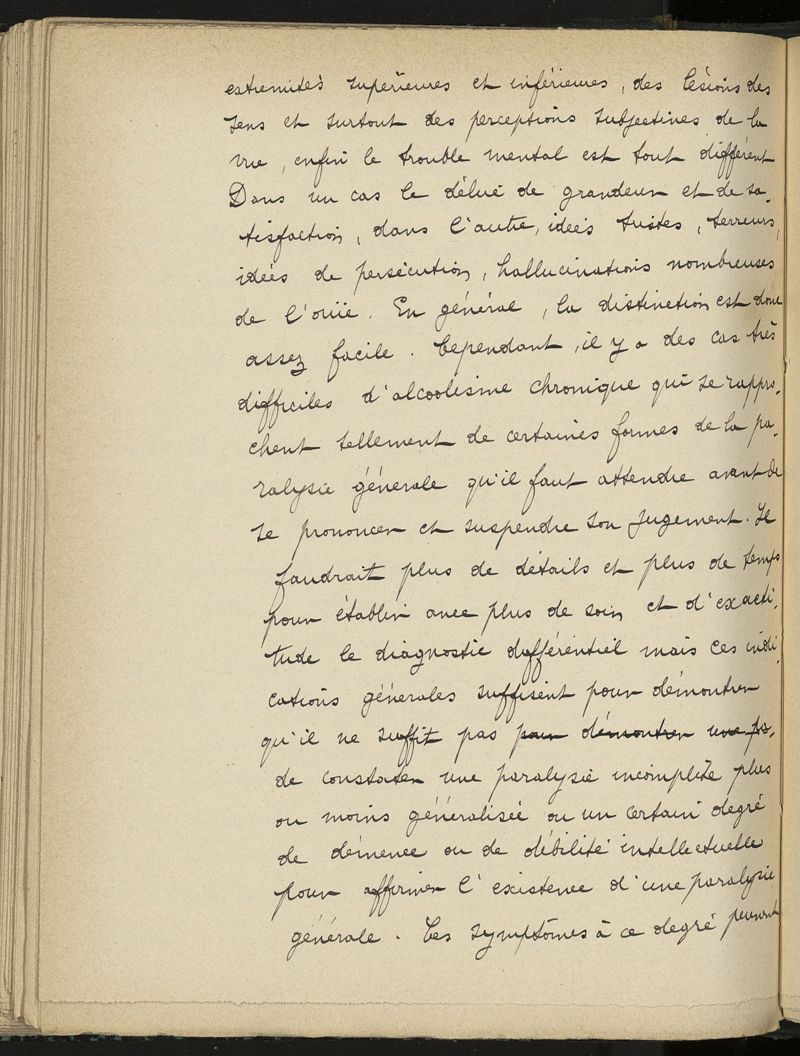 extremités supérieures et inférieures, des lésions des
sens et surtout des perceptions subjectives de la
vue, enfin le trouble mental est tout différent
Dans un cas le délire de grandeur et de sa-
tisfaction, dans l'autre, idées tristes, terreurs,
idées de persécution, hallucinations nombreuses
de l'ouïe. En général, la distinction est donc
assez facile. Cependant, il y a des cas très
difficiles d'alcoolisme chronique qui se rappro-
chent tellement de certaines formes de la pa-
ralysie générale qu'il faut attendre avant de
se prononcer et suspendre son jugement. Il
faudrait plus de détails et plus de temps
pour établir avec plus de soin et d'exacti-
tude le diagnostic différentiel mais ces indi-
cations générales suffisent pour démontrer
qu'il ne suffit pas pour démontrer une pa-
de constater une paralysie incomplète plus
ou moins généralisée ou un certain degré
de démence ou de débilité intellectuelle
pour affirmer l'existence d'une paralysie
générale. Ces symptômes à ce degré peuvent